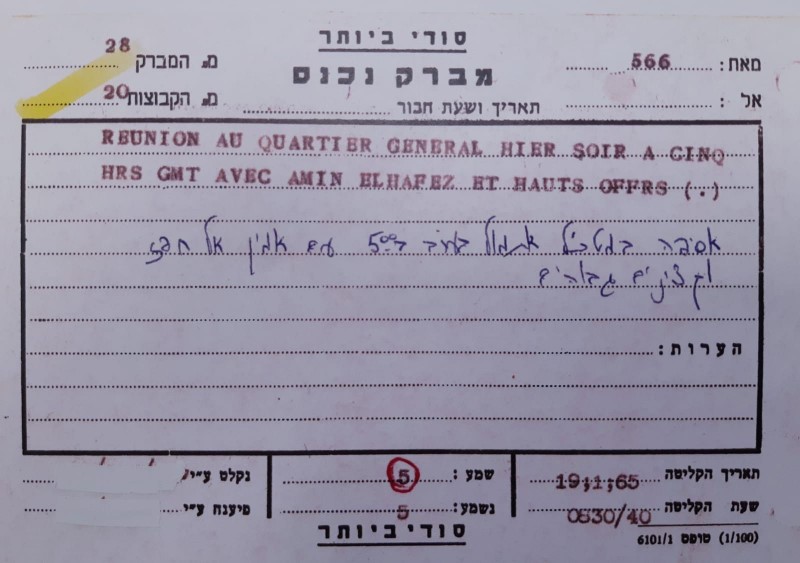 סודי ביותר
מברק נכנס
מאת: 566
מס המברק 28
אל :
תאריך ושעת חבור
מס הקבוצות 20
REUNION AU QUARTIER GENERAL HIER SOIR A CINQ
HRS GMT AVEC AMIN ELHAFEZ ET HAUTS OFFRS (.)
אסיפה במטכ״ל אתמול בערב ב-5⁰⁰ עם אמין אל חפז
וקצינים גבוהים
הערות:
תאריך הקליטה 19;1;65
שעת הקליטה 0830/40
שמע: 5
נשמע: 5
נקלט ע״י
פיענח ע״י
סודי ביותר
(1/100) טופס 6101/1